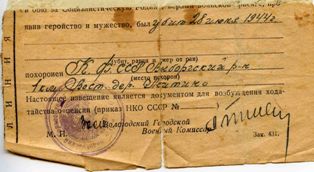 в бою за Социалистическую Родину, верный воинской присяге, про-
явив геройство и мужество, был убит 28 июня 1944 г.
(убит, ранен и умер от ран)
похоронен К.Ф.ССР Выборгский р-н
(место похорон)
1 клм Вост. дер.
Настоящее извещение является документом для возбуждения хода-
тайства о пенсии (приказ НКО СССР №
Вологодский Городской
М. П.
Военный Комиссар
Зак. 431.
ЛИНИЯ